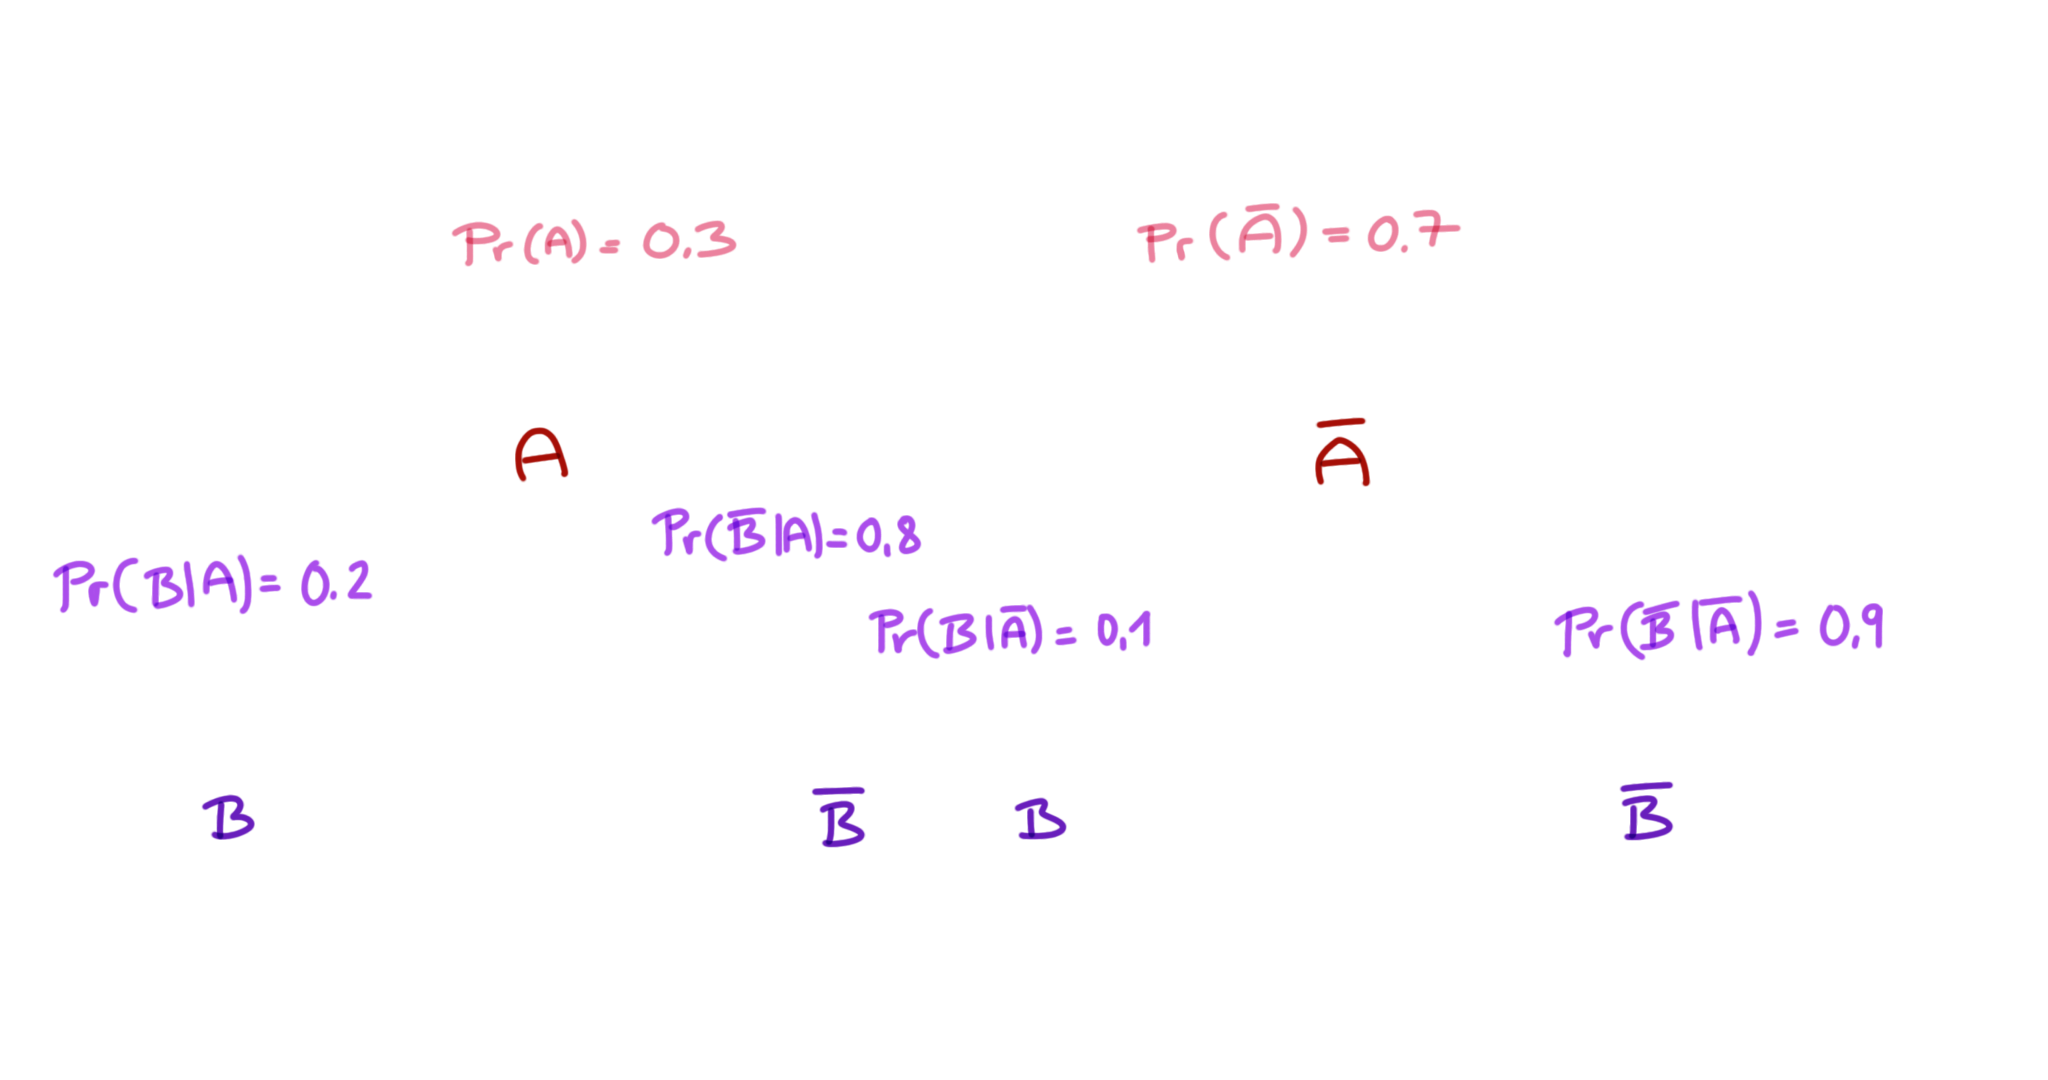 Pr(A) = 0.3 Pr(A̅) = 0.7
A A̅
Pr(B̅|A) = 0.8
Pr(B|A) = 0.2
Pr(B|A̅) = 0.1 Pr(B̅|A̅) = 0.9
B B̅ B B̅